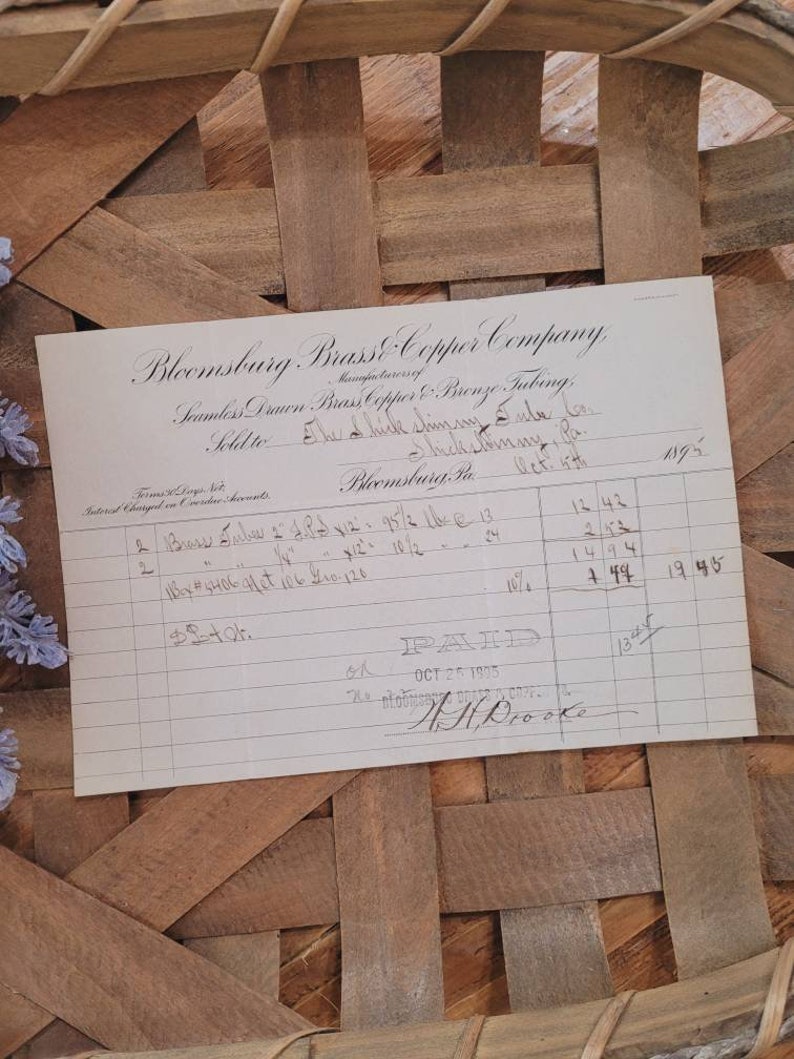 Bloomsburg Brass & Copper Company,
Manufacturers of
Seamless Drawn Brass, Copper & Bronze Tubing,
Sold to The Shickshinny Tube Co.
Shickshinny, Pa.
Bloomsburg, Pa. Oct. 5th 1895
Terms 30 Days Net,
Interest Charged on Overdue Accounts.
2 Brass Tubes 2" I.P.S x 12' = 95 1/2 lbs @ 13 12 42
2 " " 1/4" " x 12' = 10 1/2 " " 24 2 52
14 94
Net 106 Gro. 120 10% 1 49
13 45
PAID
OCT 25 1895